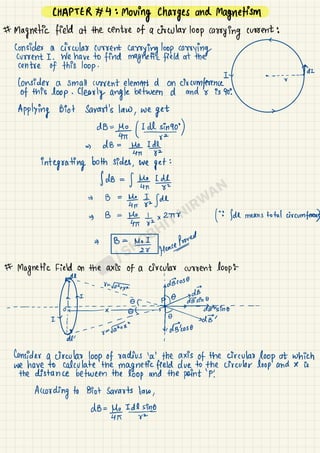 CHAPTER #4: Moving Charges and Magnetism
# Magnetic field at the centre of a circular loop carrying current:
Consider a circular current carrying loop carrying
current I. We have to find magnetic field at the
centre of this loop.
Consider a small current element dl on circumference
of this loop. Clearly angle between dl and r is 90°.
Applying Biot Savart's law, we get
dB = μ₀/4π (I dl sin90°/r²)
⇒ dB = μ₀/4π I dl/r²
integrating both sides, we get:
∫dB = ∫ μ₀/4π I dl/r²
⇒ B = μ₀/4π I/r² ∫dl
⇒ B = μ₀/4π I/r² × 2πr (∵ ∫dl means total circumference)
⇒ B = μ₀I/2r Hence Proved
I r dl
# Magnetic Field on the axis of a circular current loop:-
dl dBcosθ
r=√a²+x² dB
I a O x θ θ P dBsinθ
r=√a²+x² dB'
dl' dBcosθ
Consider a circular loop of radius 'a' the axis of the circular loop at which
we have to calculate the magnetic field due to the circular loop and x is
the distance between the loop and the point 'P'.
According to Biot Savarts law,
dB = μ₀/4π Idl sinθ/r²
NIRWAN